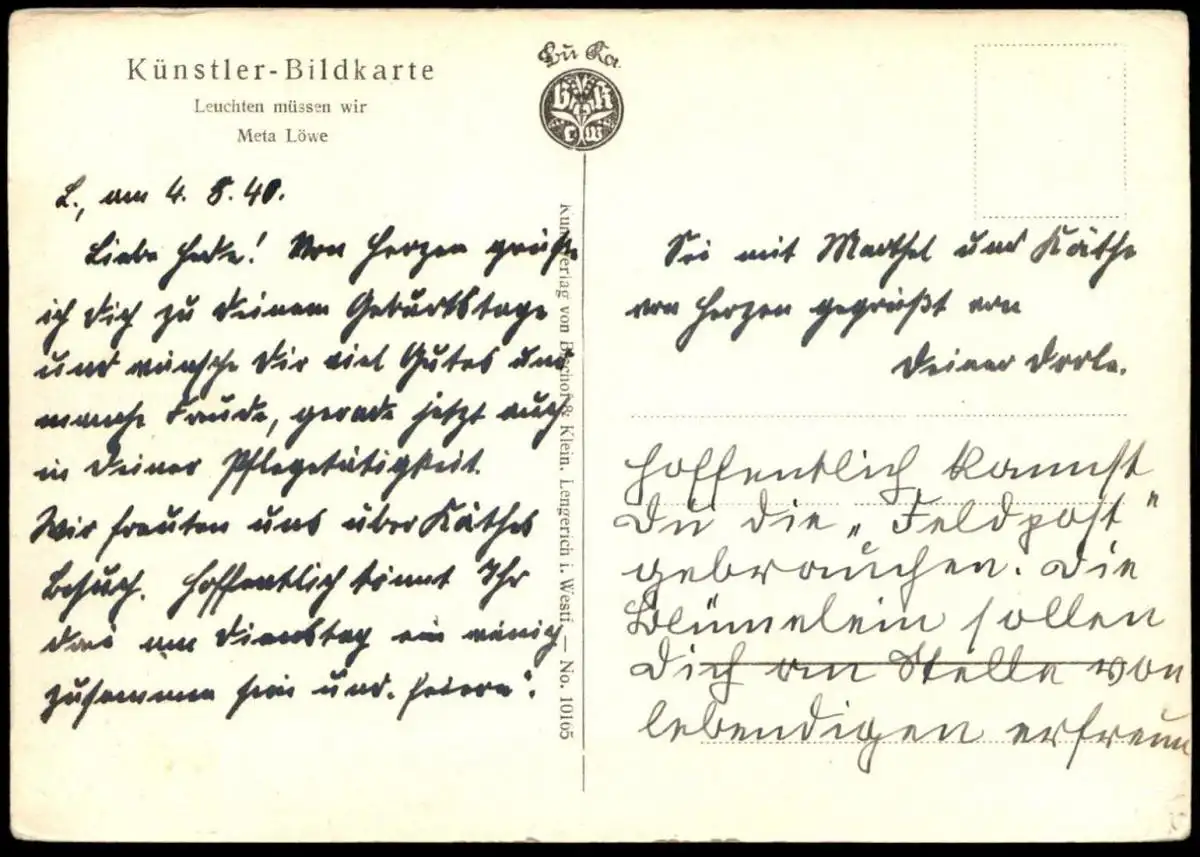 Künstler-Bildkarte
Leuchten müssen wir
Meta Löwe
Bu Ka
L., am 4. 8. 40.
Liebe Hede! Von Herzen grüße
ich Dich zu Deinem Geburtstage
und wünsche Dir viel Gutes und
manche Freude, gerade jetzt auch
in Deiner Pflegetätigkeit.
Wir freuten uns über Käthes
Besuch. Hoffentlich könnt Ihr
drei am Dienstag ein wenig
zusammen sein und „feiern“.
Kunstverlag von Bischof & Klein, Lengerich i. Westf. — No. 10165
Sei mit Marthel und Käthe
von Herzen gegrüßt von
Deiner Dorle.
Hoffentlich kannst
Du die „Feldpost“
gebrauchen. Die
Blümelein sollen
Dich an Stelle von
lebendigen erfreuen